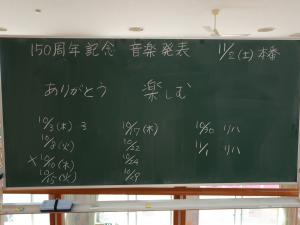 150周年記念 音楽発表 11/2(土)本番
ありがとう 楽しむ
10/3(木) 3
10/8(火)
×10/10(木)
10/15(火)
10/17(木)
10/22
10/24
10/29
10/30 リハ
11/1 リハ